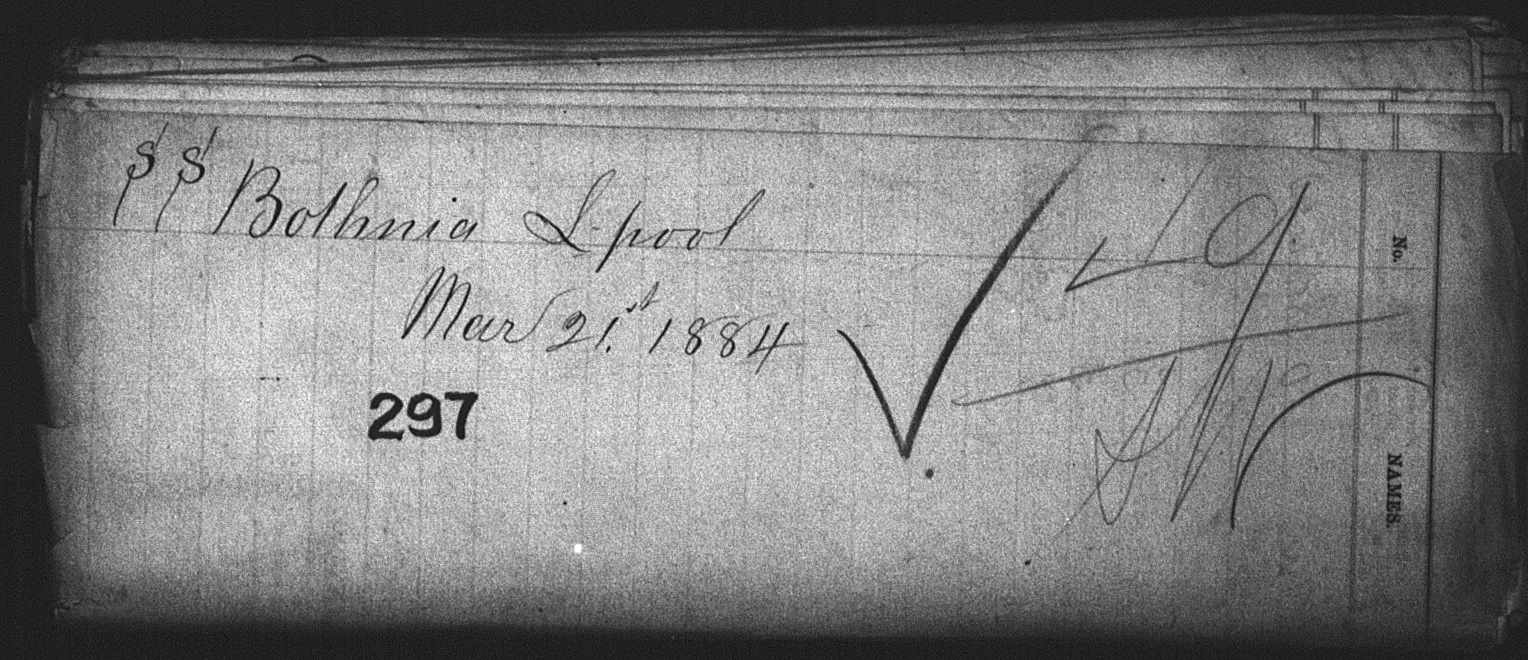 SS Bothnia L-pool
Mar 21.st 1884
297
No.
NAMES.